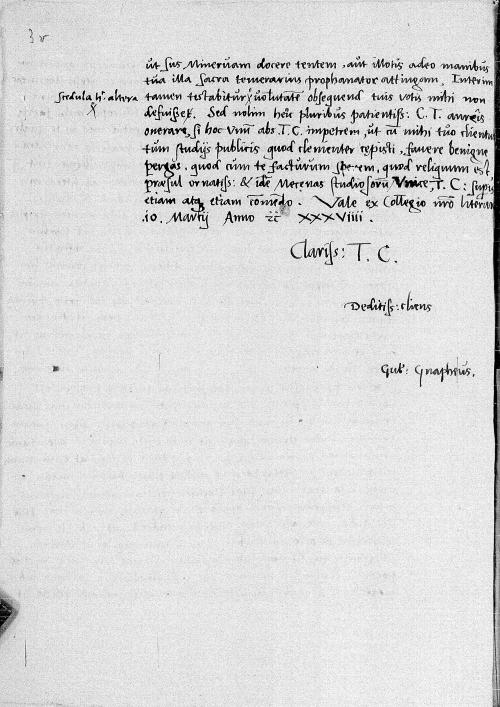 3v
ut sus Mineruam docere tentem, aut illotis adeo manibus
tua illa sacra temerarius prophanator attingam. Interim
scedula hęc altera
tamen testabitur, uoluntatē obsequendi tuis votis mihi non
defuisse. Sed nolim hęic pluribus patientiss: C. T. aureis
onerare, si hoc vnū abs. T. C. impetrem, ut cū mihi tuo clienti
tum studijs publicis quod clementer cępisti, fauere benigne
pergas. quod cum te facturum sperem, quod reliquum est
præsul ornatiss: & idē Mecenas studiosorū vnice, T. C:
etiam atq etiam cōmēdo. Vale ex Collegio nr̄o literar
10. Martij Anno ꝛc̄ XXXVIIII.
Clariss: T. C.
Deditiss: cliens
Gul: Gnapheus.